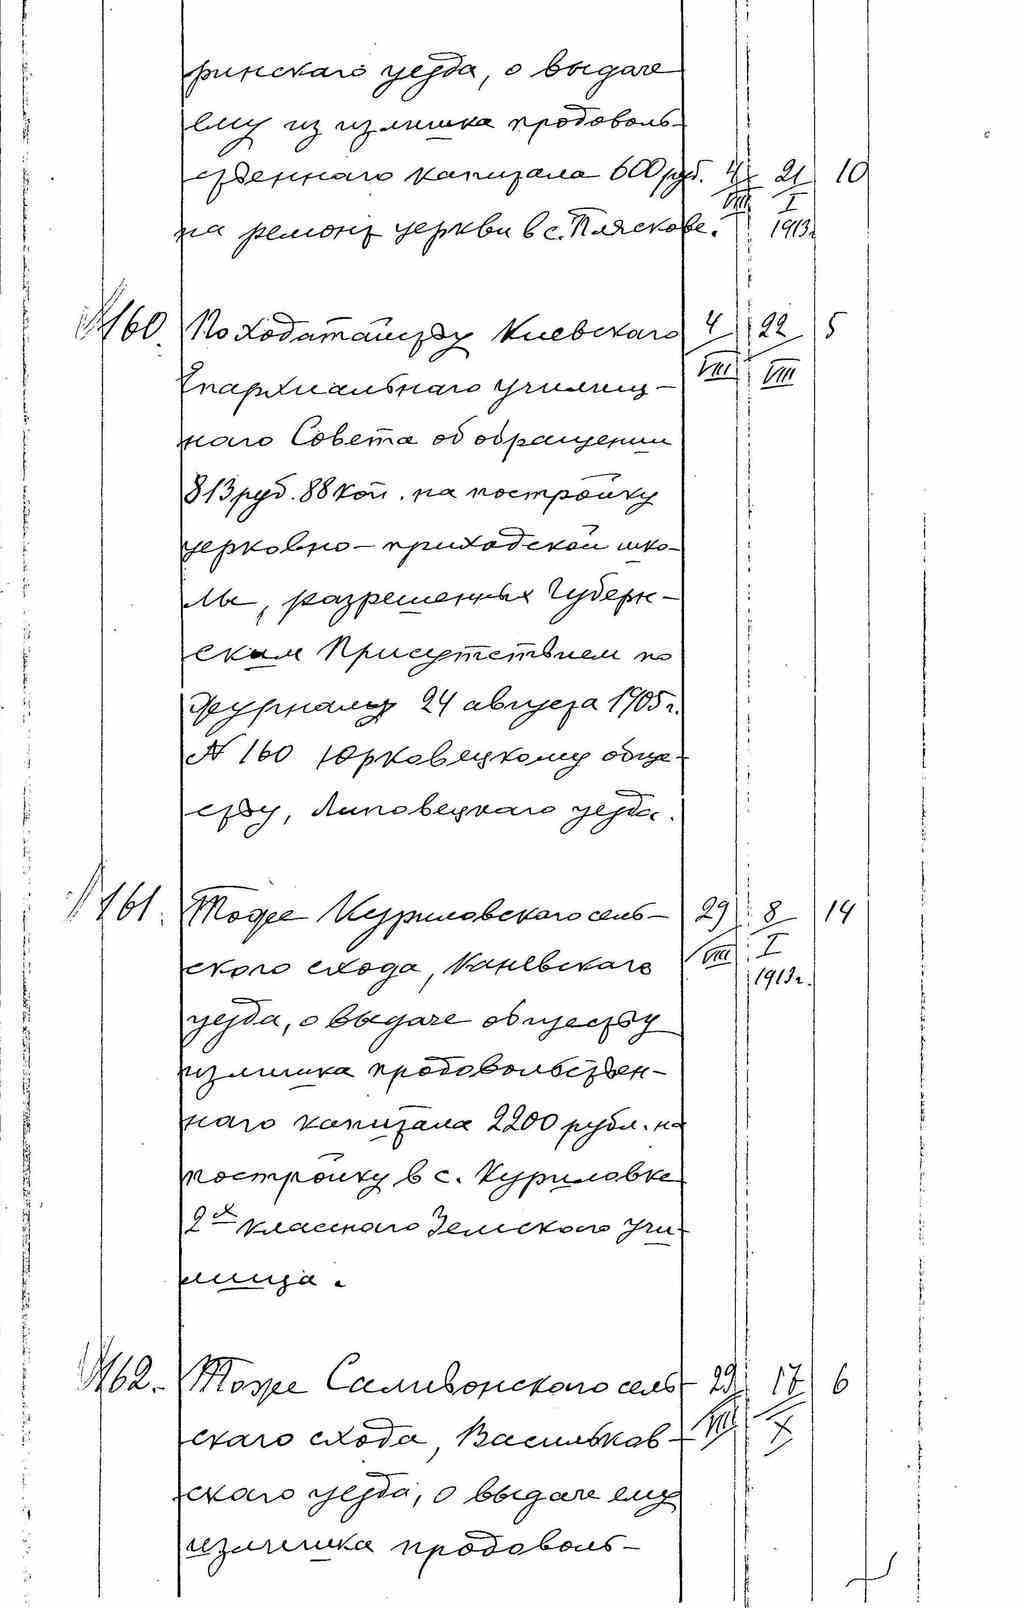 ринскаго уезда, о выдаче
ему из излишка продоволь-
ственнаго капитала 600 руб. 4/VIII 21/I 1913г. 10
на ремонт церкви в с. Пляскове.
160. По ходатайству Киевскаго 4/VIII 22/VIII 5
Епархиальнаго училищ-
наго Совета об обращении
813 руб. 88 коп. на постройку
церковно-приходской шко-
лы, разрешенных Губерн-
ским Присутствием по
журналу 24 августа 1905 г.
N 160 Юрковецкому обще-
ству, Липовецкаго уезда.
161. Тоже Куриловскаго сель- 29/VIII 8/I 1913г. 14
ского схода, Каневскаго
уезда, о выдаче обществу
излишка продовольствен-
наго капитала 2200 рубл. на
постройку в с. Куриловке
2х классного Земского Учи-
лища.
162. Тоже Саливонского сель- 29/VIII 17/X 6
скаго схода, Васильков-
скаго уезда, о выдаче ему
излишка продоволь-